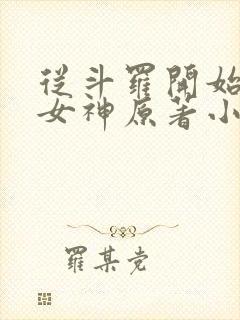 從斗羅開始
女神原著小
羅某党